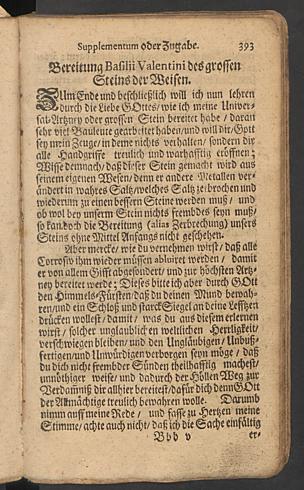 Supplementum oder Zugabe. 393
Bereitung Basilii Valentini des grossen
Steins der Weisen.
ZUm Ende und beschließlich will ich nun lehren
durch die Liebe GOttes / wie ich meine Univer-
sal-Artzney oder grossen Stein bereitet habe / daran
sehr viel Bauleute gearbeitet haben / und will dir / Gott
sey mein Zeuge / in deme nichts verhalten / sondern dir
alle Handgriffe treulich und warhafftig eröffnen;
Wisse demnach / daß dieser Stein gemacht wird aus
seinem eigenen Wesen / denn er andere Metallen ver-
ändert in wahres Saltz / welches Saltz zebrochen und
wiederum zu einen bessern Steine werden muß / und
ob wol bey unserm Stein nichts frembdes seyn muß /
so kan doch die Bereitung (alias Zerbrechung) unsers
Steins ohne Mittel Anfangs nicht geschehen.
Aber mercke / wie du vernehmen wirst / daß alle
Corrosiv ihm wieder müssen abluiret werden / damit
er von allem Gifft abgesondert / und zur höchsten Artz-
ney bereitet werde; Dieses bitte ich aber durch GOtt
den Himmels-Fürsten / daß du deinen Mund bewah-
ren / und ein Schloß und starck Siegel an deine Leffzen
drücken wollest / damit / was du aus diesem erlernen
wirst / solcher unglaublichen weltlichen Herrligkeit /
verschwiegen bleiben / und den Ungläubigen / Unbuß-
fertigen / und Unwürdigen verborgen seyn möge / daß
du dich nicht frembder Sünden theilhafftig machest /
unnöthiger weise / und dadurch der Höllen Weg zur
Verdamniß dir allhier bereitest / dafür dich denn GOtt
der Allmächtige treulich bewahren wolle. Darumb
nimm auff meine Rede / und fasse zu Hertzen meine
Stimme / achte auch nicht / daß ich die Sache einfältig
Bbb v er-